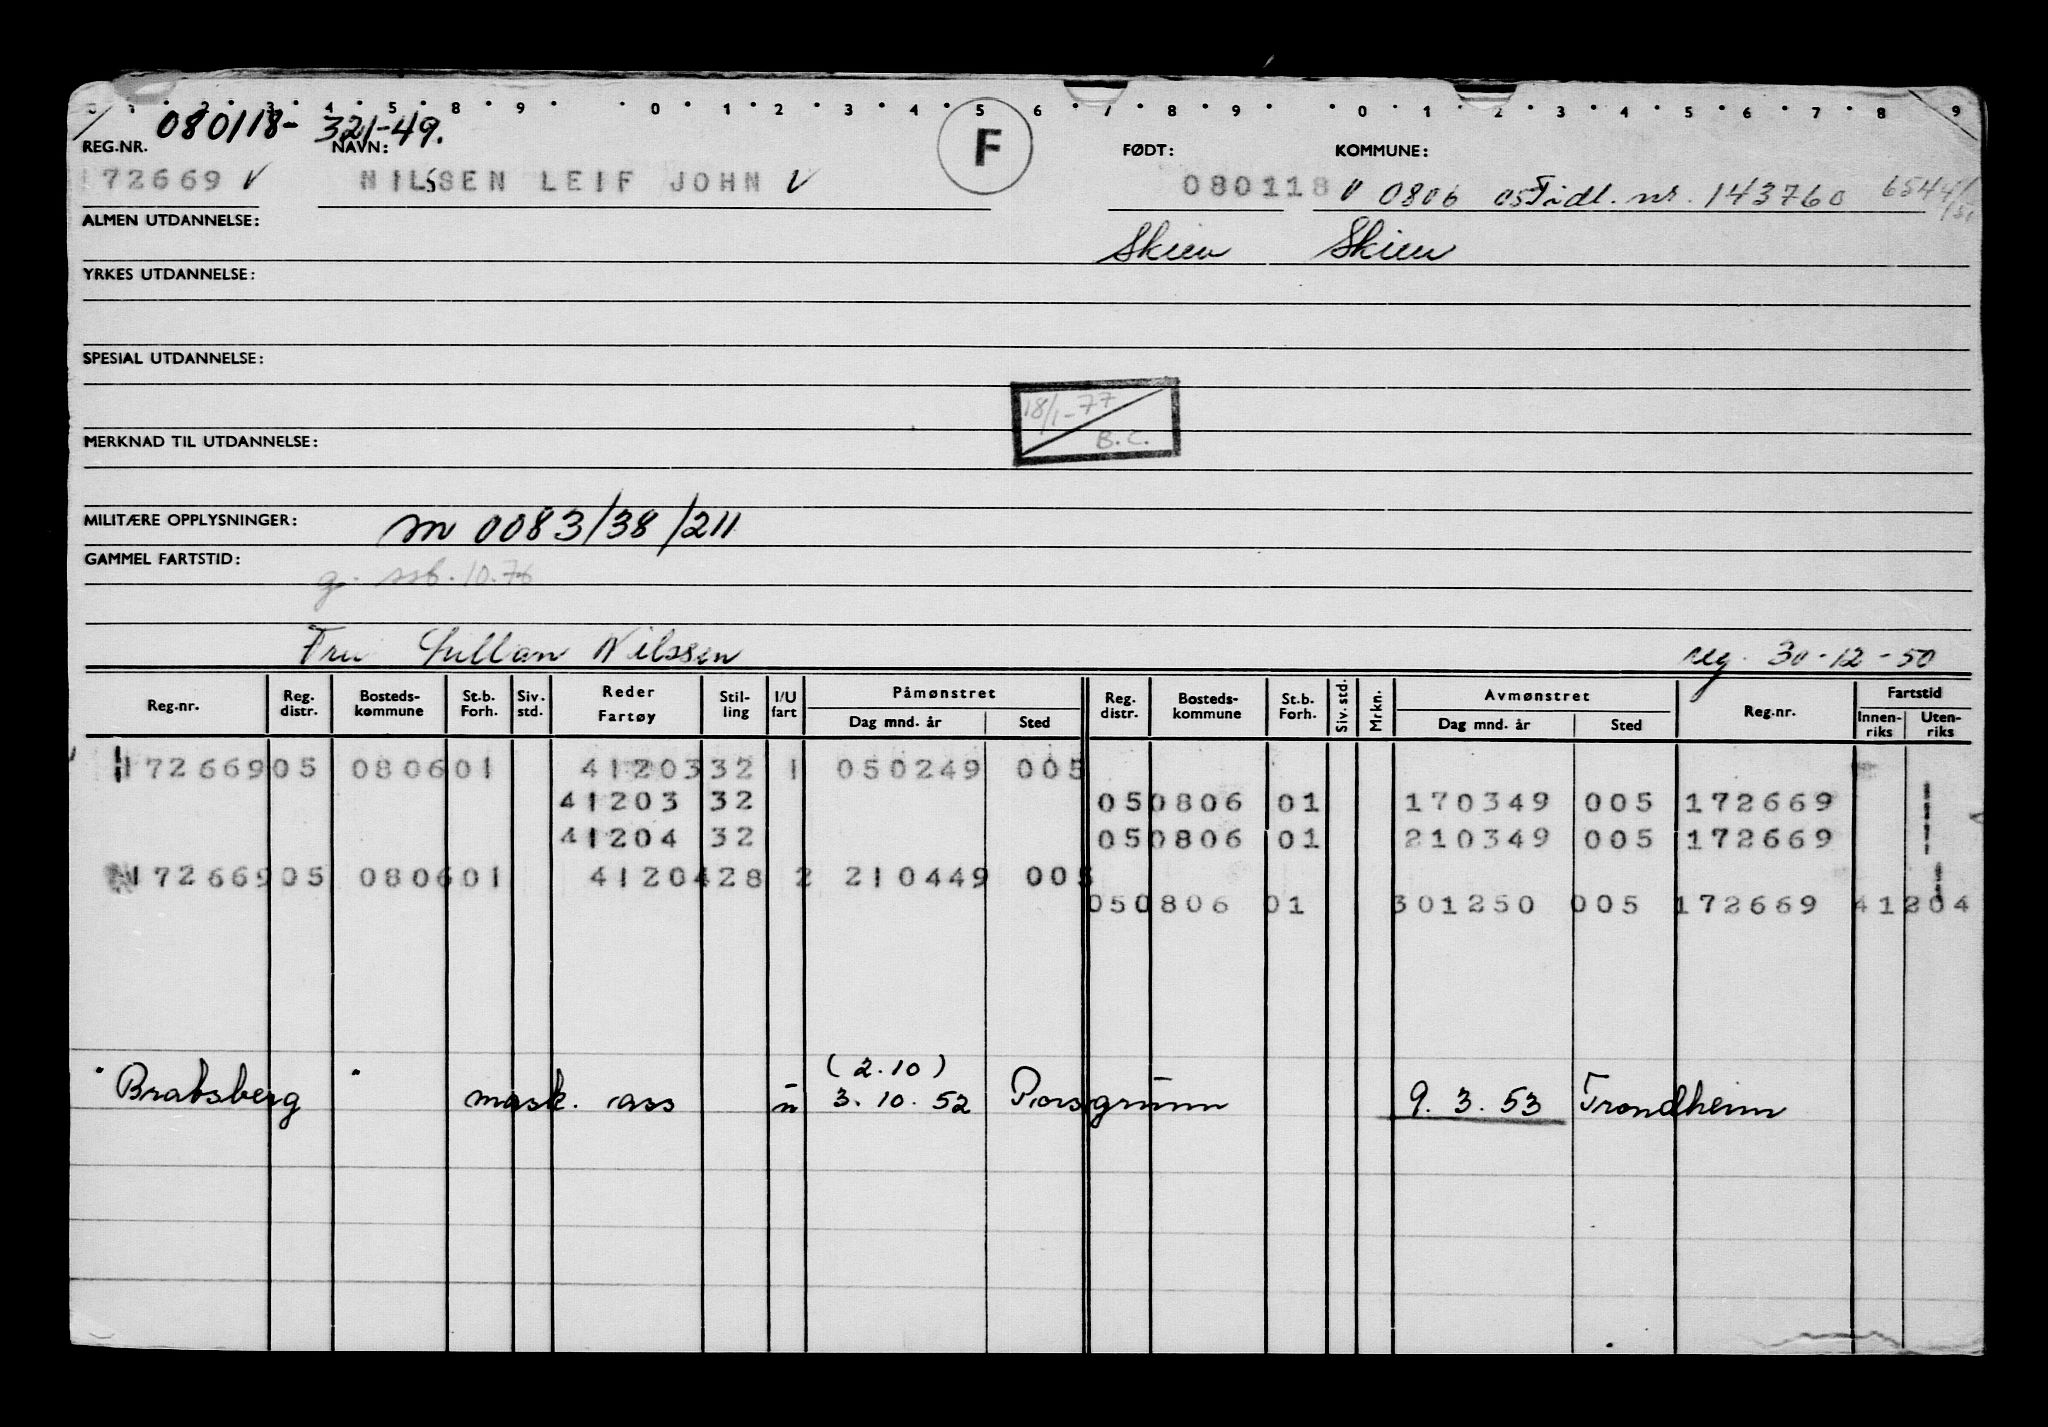 0 1 2 3 4 5 8 9 0 1 2 3 4 5 6 7 8 9 0 1 2 3 4 5 6 7 8 9
080118- 321-49.
REG.NR. NAVN: F FØDT: KOMMUNE:
172669 V NILSSEN LEIF JOHN V 080118 V 0806 05 Tidl. nr. 143760
ALMEN UTDANNELSE: Skien Skien
YRKES UTDANNELSE:
SPESIAL UTDANNELSE:
18/1-77
MERKNAD TIL UTDANNELSE: B.C.
MILITÆRE OPPLYSNINGER: m 0083/38/211
GAMMEL FARTSTID:
g. ssb. 10.76
Fru Lullan Nilssen reg. 30-12-50
Reg.nr. Reg. distr. Bosteds- kommune St.b. Forh. Siv. std. Reder Fartøy Stil- ling I/U fart Påmønstret Dag mnd. år Sted Reg. distr. Bosteds- kommune St.b. Forh. Siv. std. Mrkn. Avmønstret Dag mnd. år Sted Reg.nr. Fartstid Innen- riks Uten- riks
172669 05 0806 01 41203 32 1 050249 005
41203 32 05 0806 01 170349 005 172669
41204 32 05 0806 01 210349 005 172669
172669 05 0806 01 41204 28 2 210449 005
05 0806 01 301250 005 172669 41204
(2.10)
"Bratsberg" mask. ass u 3.10.52 Porsgrunn 9.3.53 Trondheim